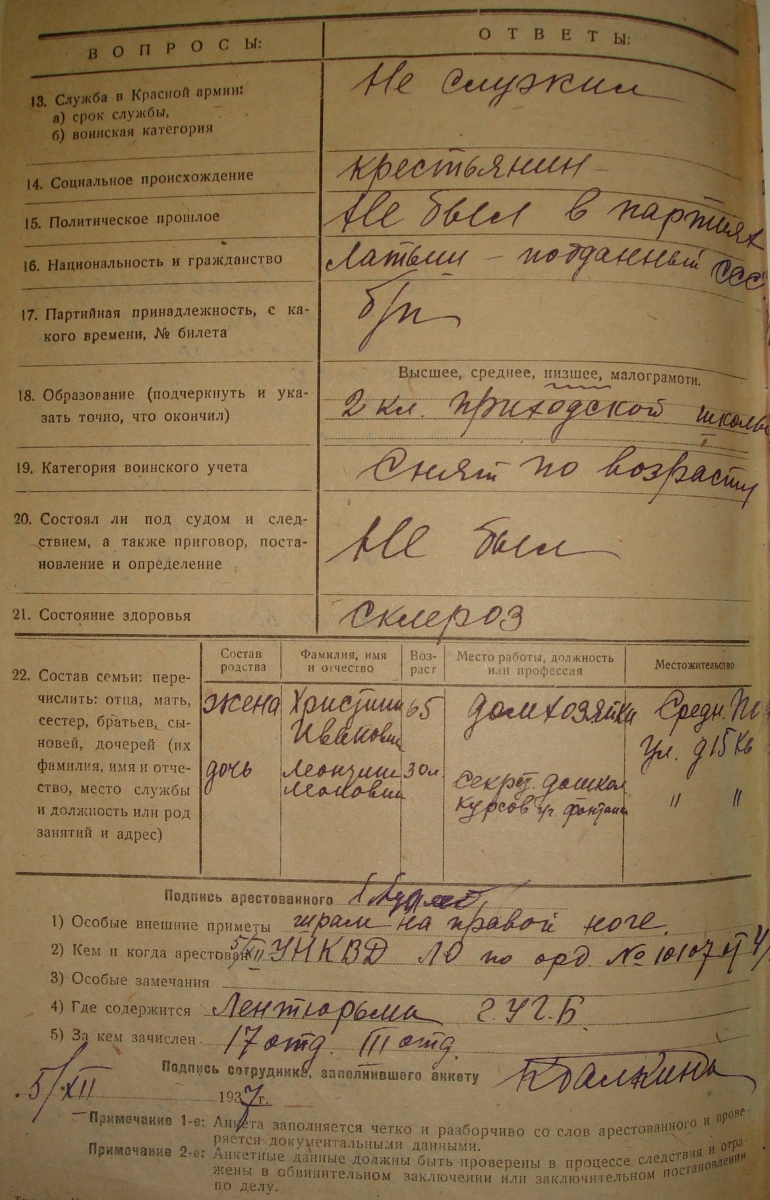 ВОПРОСЫ: ОТВЕТЫ:
13. Служба в Красной армии: Не служил
а) срок службы,
б) воинская категория
14. Социальное происхождение крестьянин
15. Политическое прошлое Не был в партиях
16. Национальность и гражданство латыш – подданный ССС
17. Партийная принадлежность, с ка- б/п
кого времени, № билета
Высшее, среднее, низшее, малограмотн.
18. Образование (подчеркнуть и ука- 2 кл. приходской школы
зать точно, что окончил)
19. Категория воинского учета Снят по возрасту
20. Состоял ли под судом и след- Не был
ствием, а также приговор, поста-
новление и определение
21. Состояние здоровья склероз
22. Состав семьи: пере-
числить: отца, мать,
сестер, братьев, сы-
новей, дочерей (их
фамилия, имя и отче-
ство, место службы
и должность или род
занятий и адрес)
Состав родства Фамилия, имя и отчество Воз-раст Место работы, должность или профессия Местожительство
жена Христина Ивановна 65 домхозяйка Средн. По
ул. д 15 кв
дочь Леоновна 30 л. секрет. дошкол. курсов " "
Подпись арестованного
1) Особые внешние приметы шрам на правой ноге.
2) Кем и когда арестован 5/XII УНКВД ЛО по орд. № 10107 от 4/
3) Особые замечания
4) Где содержится Лентюрьма УГБ
5) За кем зачислен 17 отд. III отд.
Подпись сотрудника, заполнившего анкету
5/XII 1937 г.
Примечание 1-е: Анкета заполняется четко и разборчиво со слов арестованного и прове-
ряется документальными данными.
Примечание 2-е: Анкетные данные должны быть проверены в процессе следствия и отра-
жены в обвинительном заключении или заключительном постановлении
по делу.